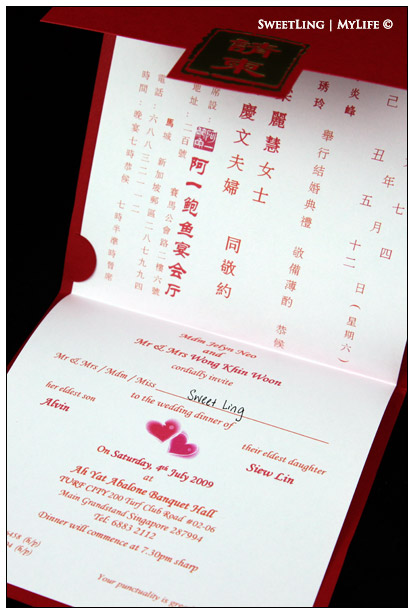 SWEETLING | MYLIFE ©
請柬
己丑年七
五月四
十二日(星期六)
炎峰
琇玲 舉行結婚典禮 敬備薄酌 恭候
麗慧女士
慶文夫婦 同敬約
席設:
阿一鲍鱼宴会厅
地址:二百號
馬城 賽馬公會路二樓六號
新加坡郵區二八七九九四
電話:六八八三二一一二
時間:晚宴七時恭候 七時半準時入席
Mdm Jolyn Neo
and
Mr & Mrs Wong Khin Woon
cordially invite
Mr & Mrs / Mdm / Miss Sweet Ling
to the wedding dinner of
her eldest son
Alvin
their eldest daughter
Siew Lin
On Saturday, 4th July 2009
at
Ah Yat Abalone Banquet Hall
TURF CITY 200 Turf Club Road #02-06
Main Grandstand Singapore 287994
Tel: 6883 2112
Dinner will commence at 7.30pm sharp
Your punctuality is
(H/p)
(H/p)